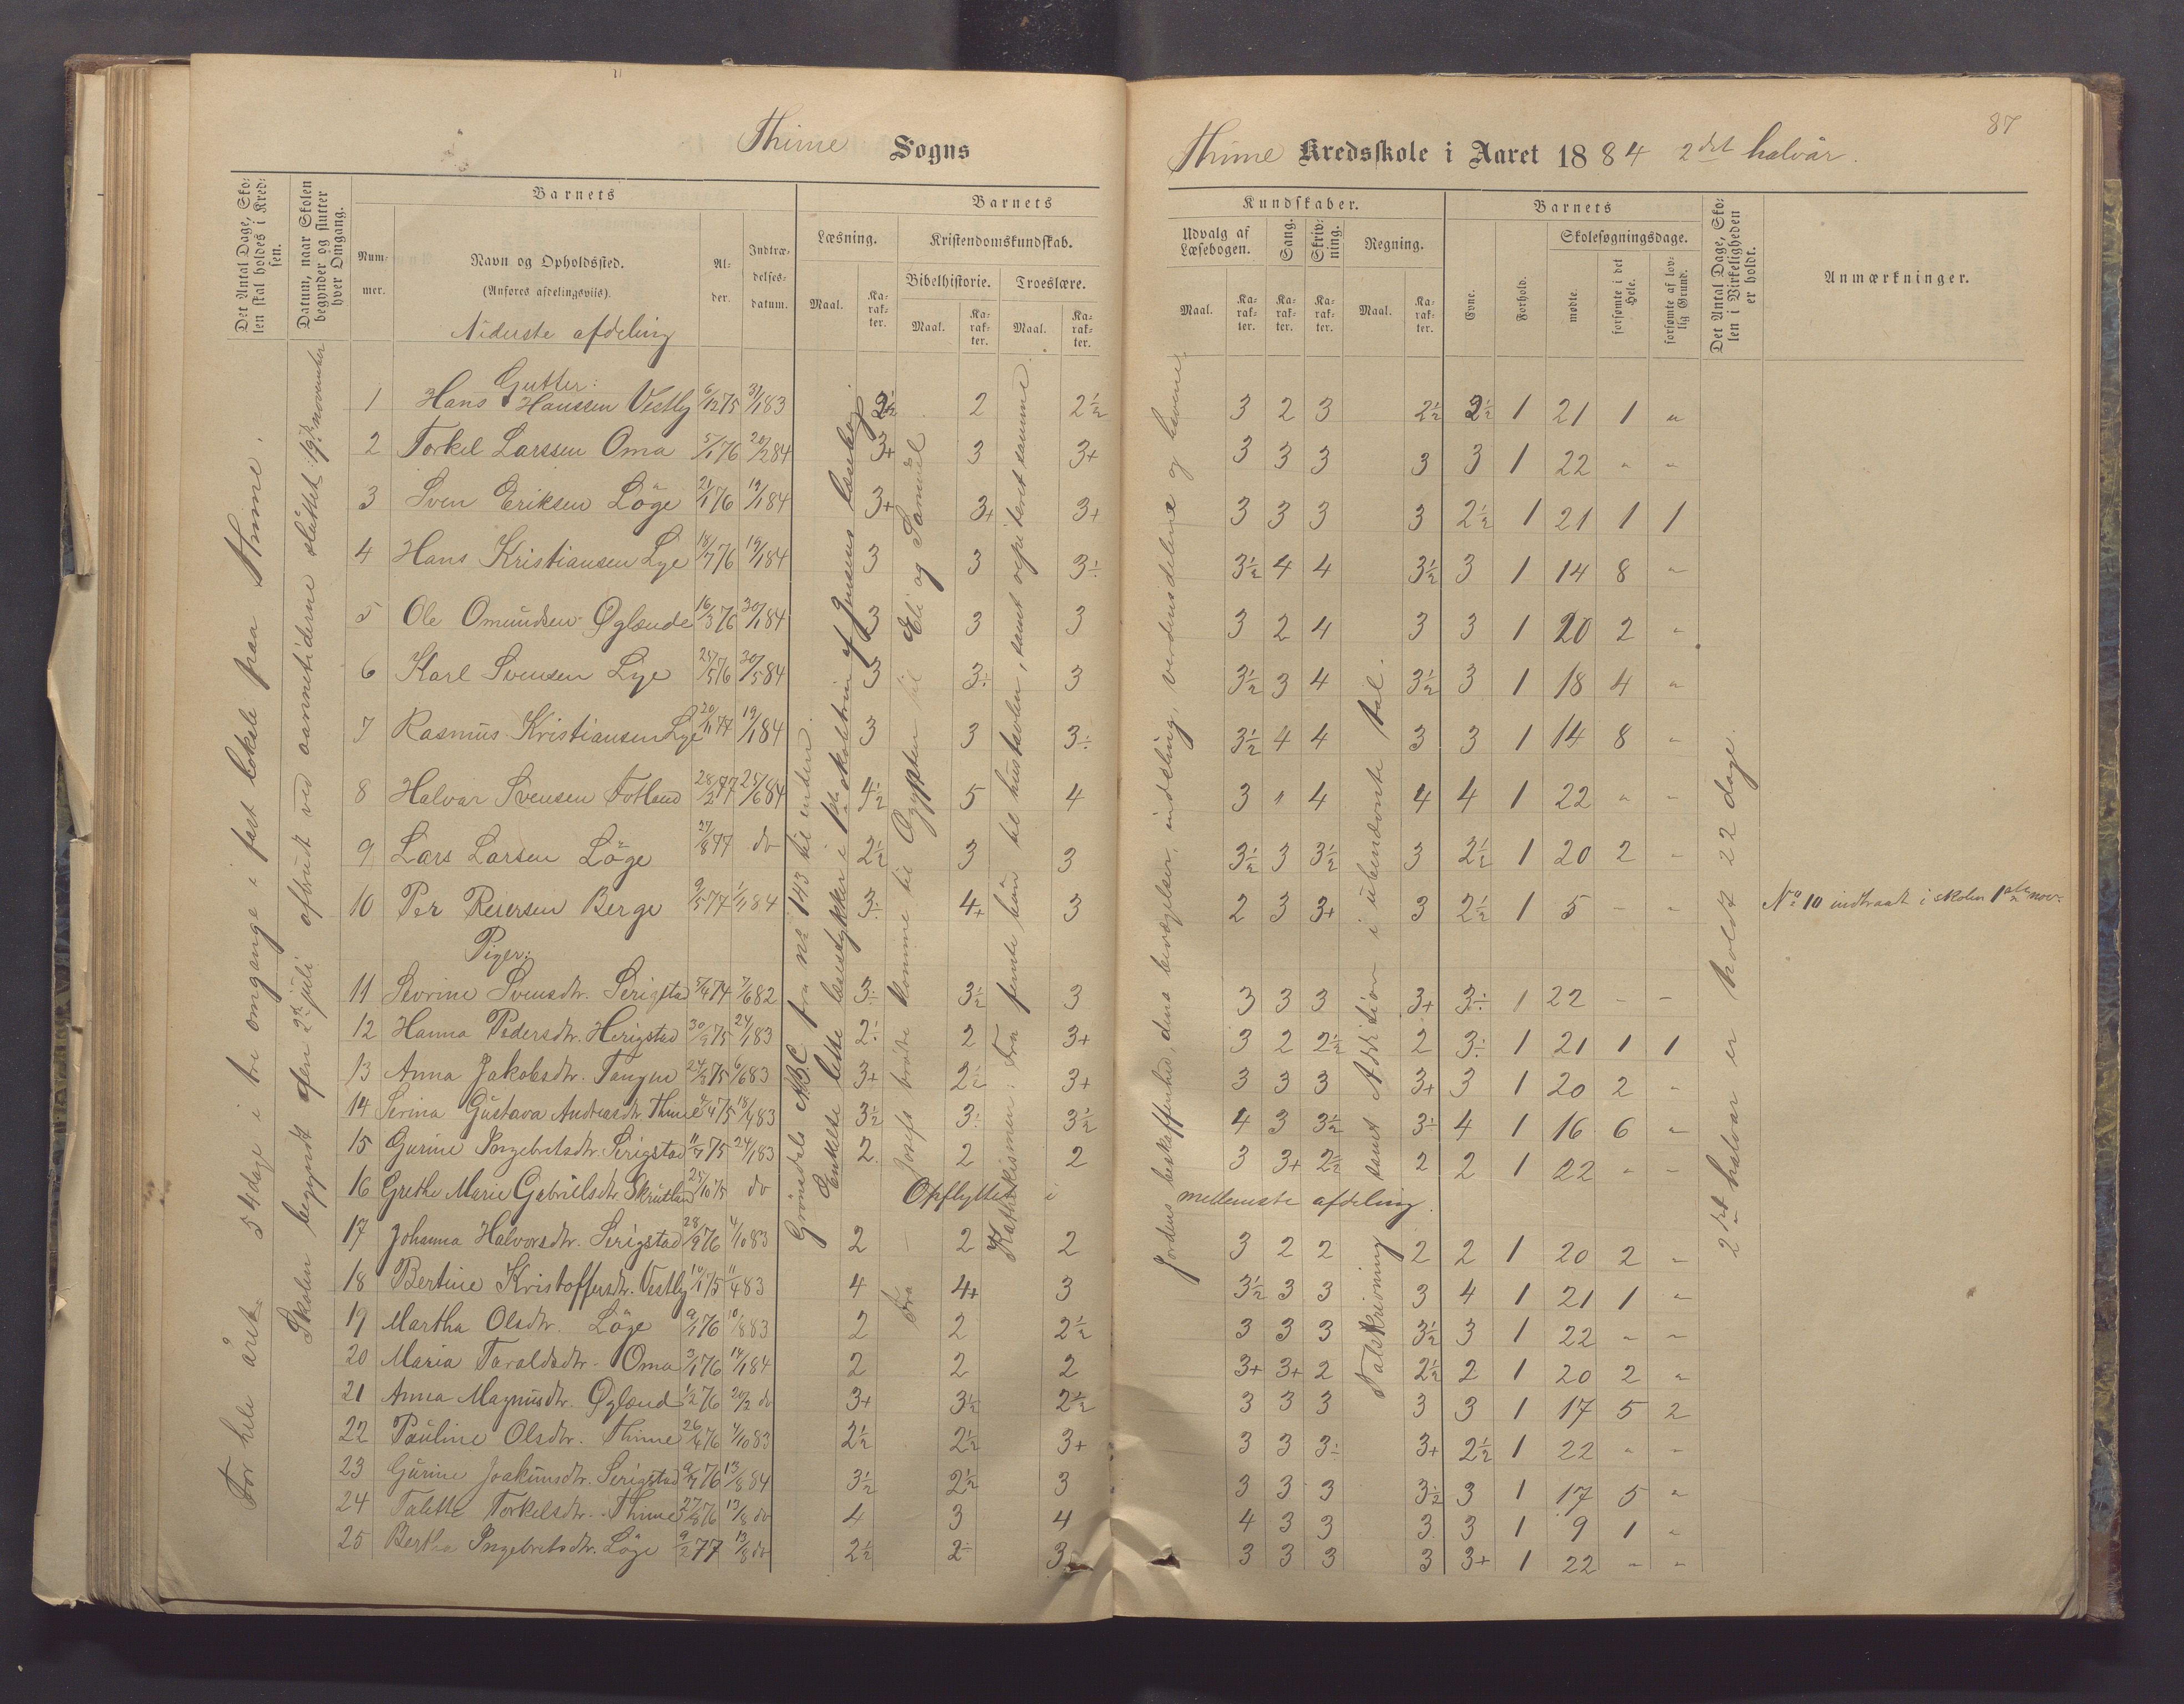 87
Thime Sogns
Thime Kredsskole i Aaret 1884 2det halvår.
Det Antal Dage, Skolen skal holdes i Kredsen.
Datum, naar Skolen begynder og slutter hver Omgang.
Barnets
Nummer.
Navn og Opholdssted.
(Anføres afdelingsviis).
Alder.
Indtrædelsesdatum.
Barnets
Læsning.
Kristendomskundskab.
Maal.
Karakter.
Bibelhistorie.
Troeslære.
Maal.
Karakter.
Maal.
Karakter.
Kundskaber.
Udvalg af Læsebogen.
Sang.
Skrivning.
Regning.
Maal.
Karakter.
Karakter.
Karakter.
Maal.
Karakter.
Barnets
Evne.
Forhold.
Skolesøgningsdage.
mødte.
forsømte i det Hele.
forsømte af lovlig Grund.
Det Antal Dage, Skolen i Virkeligheden er holdt.
Anmærkninger.
Niderste afdeling
Gutter:
1 Hans Hanssen Vestly 6/12 75 31/1 83 2½ 2 2½ 3 2 3 2½ 2½ 1 21 1 "
2 Torkel Larssen Oma 5/1 76 20/2 84 3+ 3 3+ 3 3 3 3 3 1 22 " "
3 Sven Eriksen Löge 21/1 76 19/1 84 3+ 3+ 3+ 3 3 3 3 2½ 1 21 1 1
4 Hans Kristiansen Lye 18/7 76 19/1 84 3 3 3÷ 3½ 4 4 3½ 3 1 14 8 "
5 Ole Omundsen Øglænde 16/3 76 30/1 84 3 3 3 3 2 4 3 3 1 20 2 "
6 Karl Svensen Lye 25/5 76 30/5 84 3 3÷ 3 3½ 3 4 3½ 3 1 18 4 "
7 Rasmus Kristiansen Lye 20/11 77 19/1 84 3 3 3÷ 3½ 4 4 3 3 1 14 8 "
8 Halvar Svensen Fotland 28/2 77 25/6 84 4½ 5 4 3 " 4 4 4 1 22 " "
9 Lars Larsen Löge 27/8 77 do 2½ 3 3 3½ 3 3½ 3 2½ 1 20 2 "
10 Per Reiersen Berge 9/5 77 1/11 84 3÷ 4+ 3 2 3 3+ 3 2½ 1 5 " " No 10 indtraat i skolen 1ste nov.
Piger:
11 Sevrine Svensdtr. Serigstad 5/4 74 7/6 82 3÷ 3½ 3 3 3 3 3+ 3÷ 1 22 " "
12 Hanna Pedersdtr. Herigstad 30/9 75 24/1 83 2÷ 2 3+ 3 2 2½ 2 3÷ 1 21 1 1
13 Anna Jakobsdtr. Tangen 24/8 75 6/6 83 3+ 2½ 3+ 3 3 3 3+ 3 1 20 2 "
14 Serina Gustava Andreasdtr. Thime 4/4 75 18/4 83 3½ 3÷ 3½ 4 3 3½ 3÷ 4 1 16 6 "
15 Gurine Ingebretsdtr. Serigstad 11/7 75 24/1 83 2 2 2 3 3+ 2½ 2 2 1 22 " "
16 Grethe Marie Gabrielsdtr. Skrutlan 25/10 75 do Opflyttet i mellemste afdeling.
17 Johanna Halvorsdtr. Serigstad 28/9 76 4/10 83 2 2 2 3 2 2 2 2 1 20 2 "
18 Bertine Kristoffersdtr. Vestly 10/1 75 11/4 83 4 4+ 3 3½ 3 3 3 4 1 21 1 "
19 Martha Olsdtr. Löge 9/1 76 10/8 83 2 2 2½ 3 3 3 3½ 3 1 22 " "
20 Maria Taraldsdtr. Oma 3/1 76 14/1 84 2 2 2 3+ 3+ 2 2½ 2 1 20 2 "
21 Anna Magnusdtr. Øglænd 1/2 76 20/2 do 3+ 3½ 2½ 3 3 3 3 3 1 17 5 2
22 Pauline Olsdtr. Thime 26/4 76 4/10 83 2½ 2½ 3+ 3 3 3÷ 3+ 2½ 1 22 " "
23 Gurine Joakimsdtr. Serigstad 9/7 76 13/8 84 3½ 2½ 3 3 3 3 3½ 3 1 17 5 "
24 Talette Torkelsdtr. Thime 27/8 76 13/8 do 4 3 4 4 3 3 3 3 1 9 1 "
25 Bertha Ingebretsdtr. Löge 9/2 77 13/8 do 2½ 2÷ 3 3 3 3 3 3+ 1 22 " "
For hele året 54 dage i tre omgange i fast lokale paa Thime.
Skolen begyndt den 2den juli afbrudt ved aannetiderne sluttet 19de november
Grönsdals A.B.C. fra no 143 til enden.
Enkelte lette læsestykker i 1ste skoletrin af Jensens læsebog
Josefs brödre komme til Ægypten til Eli og Samuel
Fra
Kathekismen: Fra femte bön til hustavlen, samt repeteret samme.
Jordens beskaffenhed, dens bevægelser, inddeling, verdensdelene og havene.
Talskrivning samt Addition i ubenævnte tal.
2det halvår er holdt 22 dage.